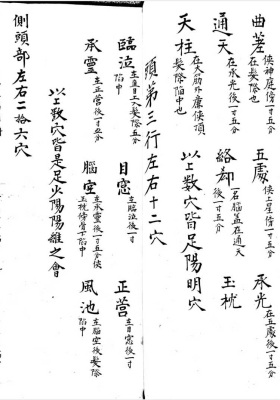 曲差 俠神庭傍一寸五分在髮際
五處 俠上星傍一寸五分
承光 在五處後一寸五分
通天 在承光後一寸五分
絡却 一名腦蓋在通天後一寸五分
玉枕
天柱 在大筋外廉俠項髮際陷中也
以上數穴皆足陽明穴
頭第三行左右十二穴
臨泣 在目上入髮際五分陷中
目窓 在臨泣後一寸
正營 在目窓後一寸
承靈 在正營後一寸五分
腦空 在承靈後一寸五分俠玉枕傍骨下陷中
風池 在腦空後髮際陷中
以上數穴皆是足少陽陽維之會
側頭部左右二拾六穴